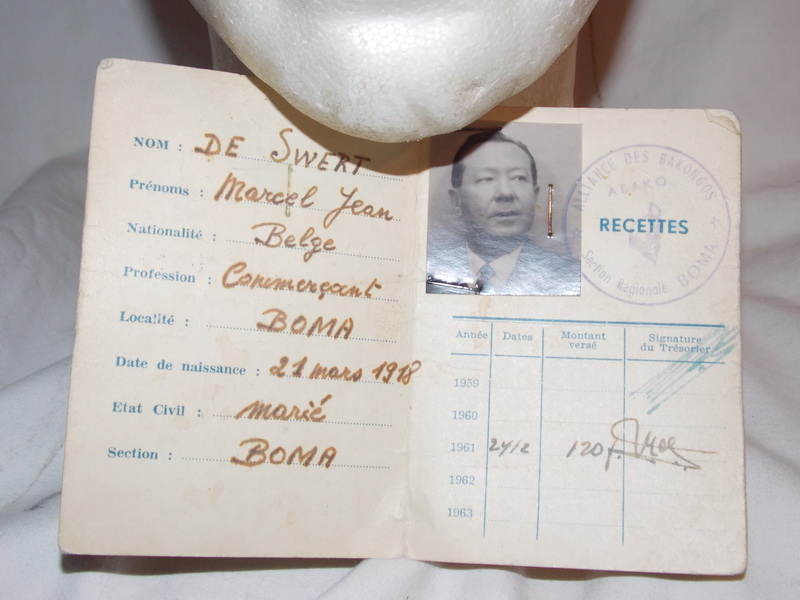 NOM : DE SWERT
Prénoms : Marcel Jean
Nationalité : Belge
Profession : Commerçant
Localité : BOMA
Date de naissance : 21 mars 1918
Etat Civil : marié
Section : BOMA
ALLIANCE DES BAKONGOS
ABAKO
Section Regionale BOMA
RECETTES
Année Dates Montant versé Signature du Trésorier
1959
1960
1961 24/2 120f.
1962
1963